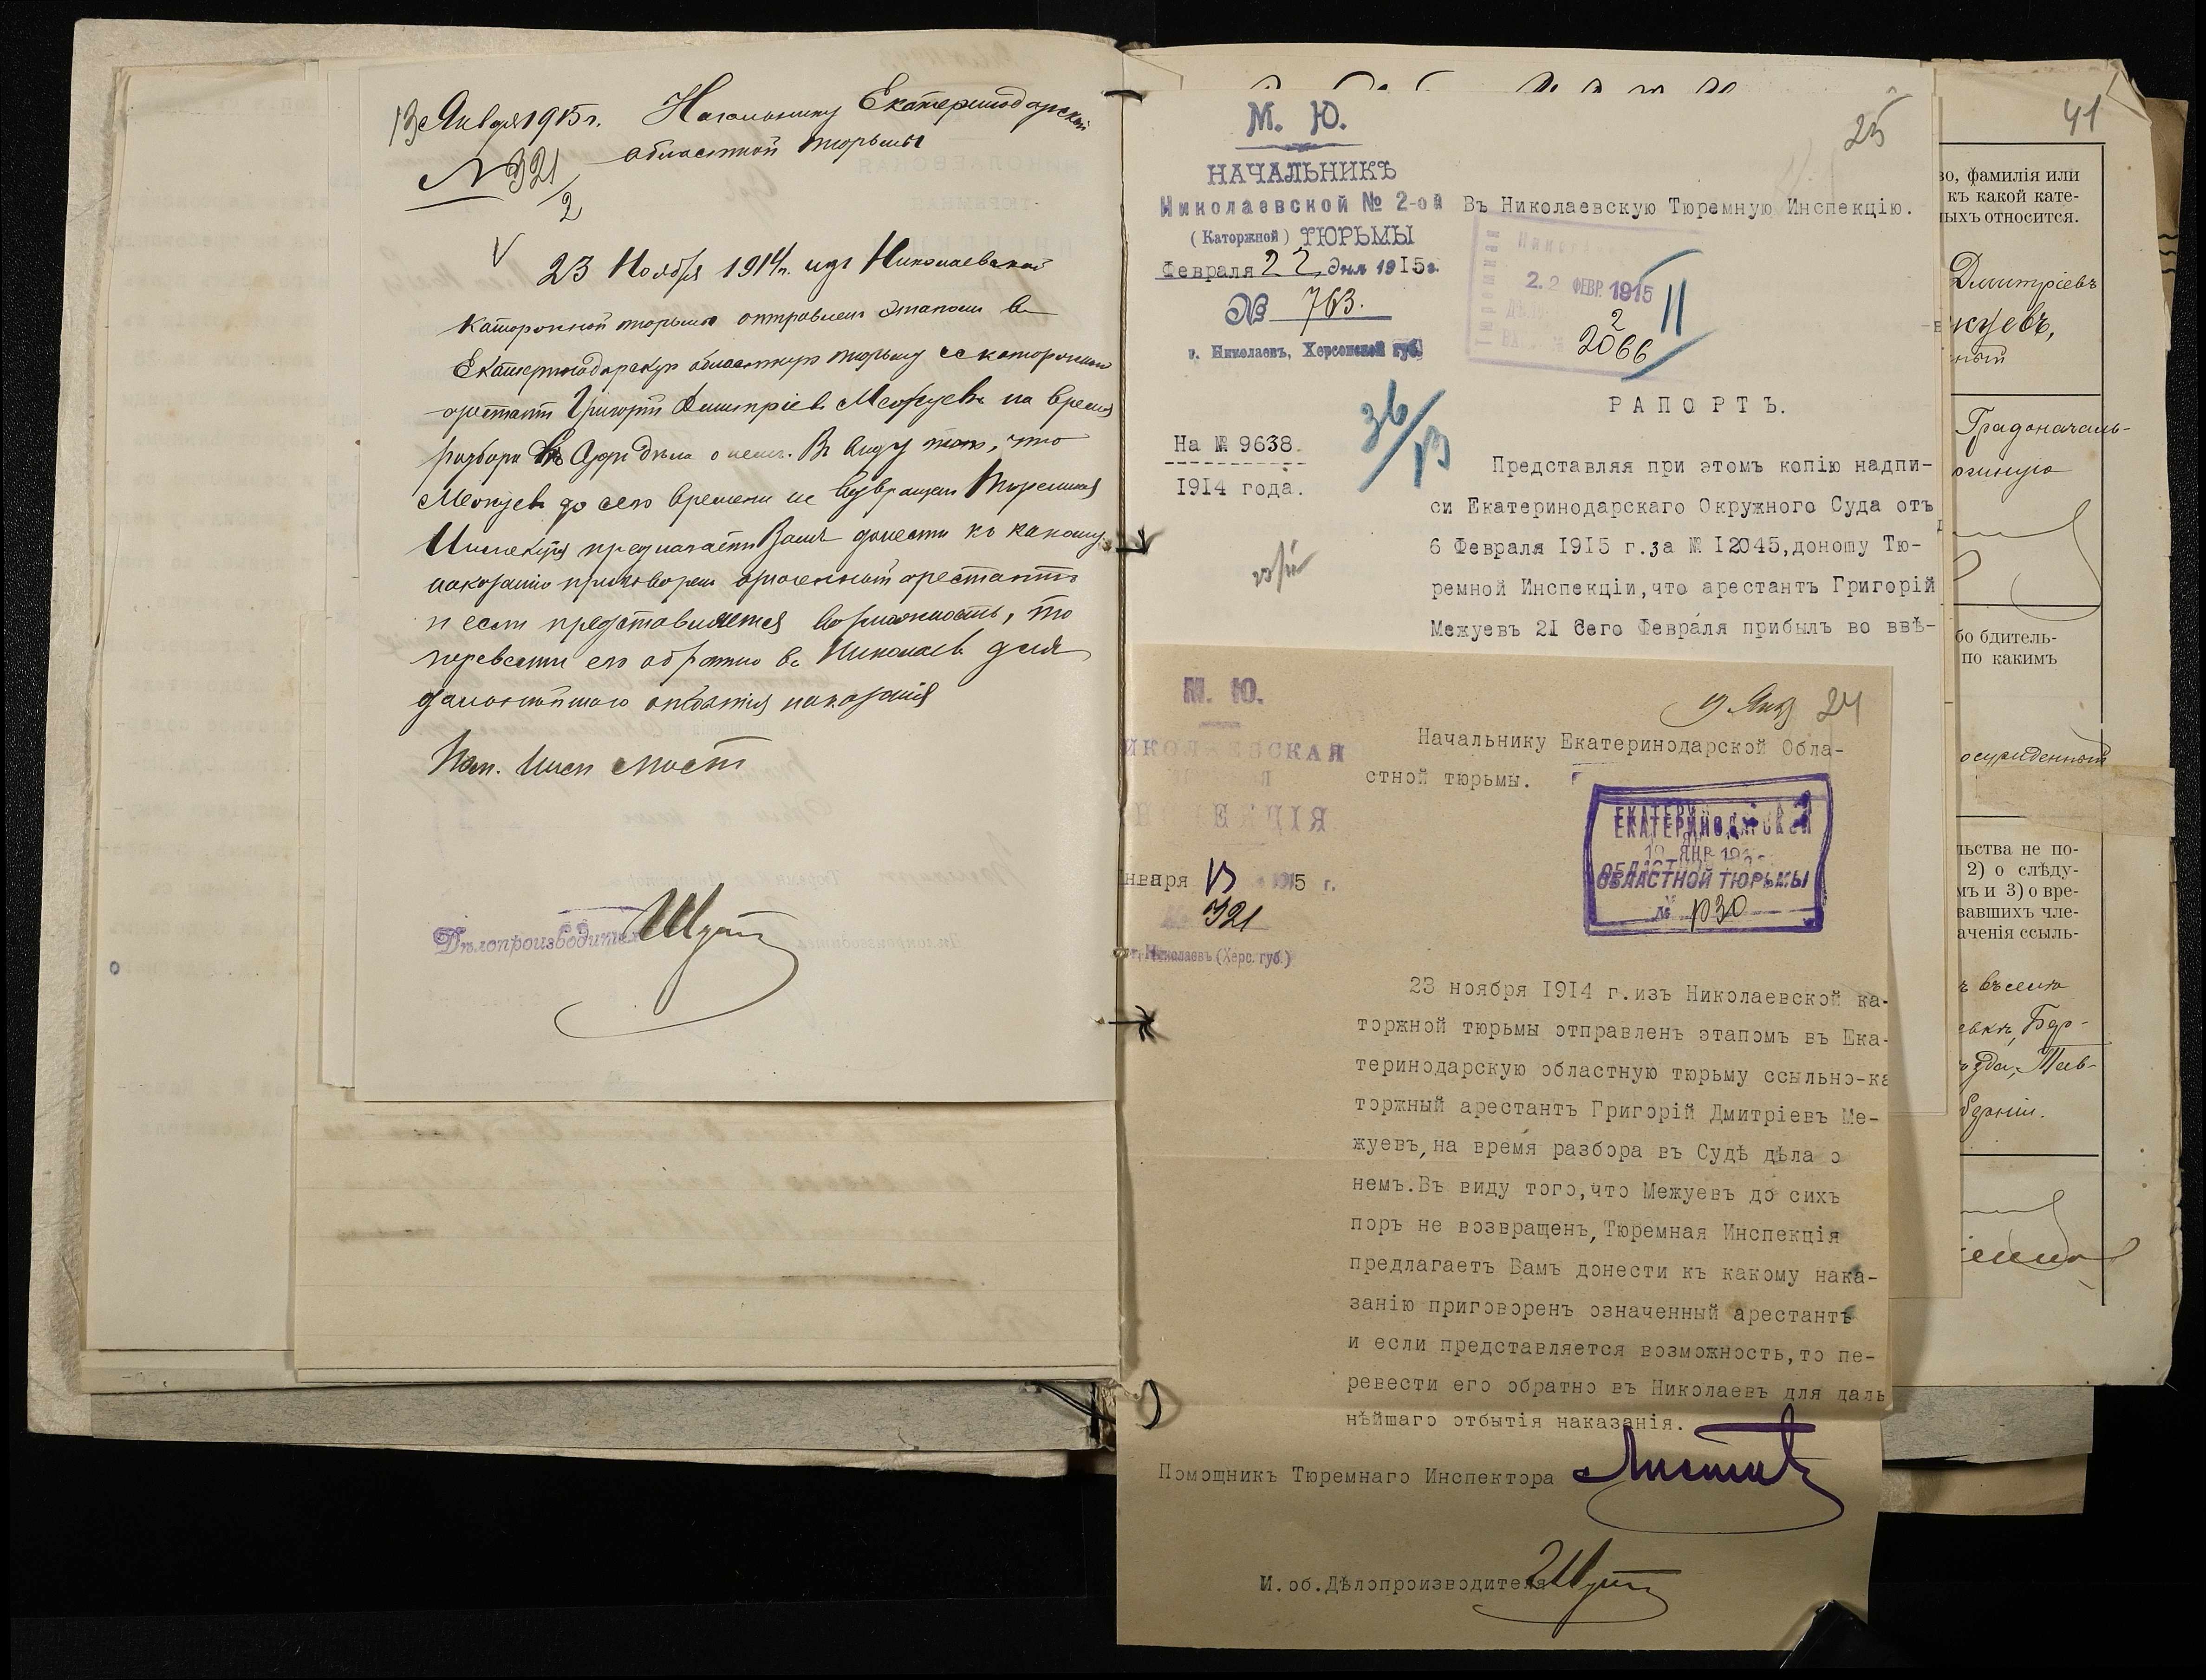 13 Января 1915 г.
Начальнику Екатеринодарской
областной тюрьмы
№ 321
2
23 Ноября 1914 г. изъ Николаевской
каторжной тюрьмы отправленъ этапомъ въ
Екатеринодарскую областную тюрьму сс каторжный
арестантъ Григорій Дмитріевъ Межуевъ на время
разбора въ Судѣ дѣла о немъ. Въ виду того, что
Межуевъ до сего времени не возвращенъ Тюремная
Инспекція предлагаетъ Вамъ донести къ какому
наказанію приговоренъ означенный арестантъ
и если представляется возможность, то
перевести его обратно въ Николаевъ для
дальнѣйшаго отбытія наказанія
Пом. Инсп
Дѣлопроизводитель
М. Ю.
НАЧАЛЬНИКЪ
Николаевской № 2-ой
(Каторжной) ТЮРЬМЫ
Февраля 22 дня 1915 г.
№ 763.
г. Николаевъ, Херсонской губ.
25
Въ Николаевскую Тюремную Инспекцію.
22 ФЕВР. 1915
2
2066
11
36/13
РАПОРТЪ.
На № 9638.
1914 года.
Представляя при этомъ копію надпи-
си Екатеринодарскаго Окружного Суда отъ
6 Февраля 1915 г.за № 12045,доношу Тю-
ремной Инспекціи,что арестантъ Григорій
Межуевъ 21 сего Февраля прибылъ во ввѣ-
М. Ю.
ИКОЛАЕВСКАЯ
нваря 13 1915 г.
321
г. Николаевъ (Херс. губ.)
19 Янв 24
Начальнику Екатеринодарской Обла-
стной тюрьмы.
ЕКАТЕРИНОДАРСКОЙ
19 ЯНВ 191
ОБЛАСТНОЙ ТЮРЬМЫ
№ 1030
23 ноября 1914 г.изъ Николаевской ка-
торжной тюрьмы отправленъ этапомъ въ Ека-
теринодарскую областную тюрьму ссыльно-ка
торжный арестантъ Григорій Дмитріевъ Ме-
жуевъ,на время разбора въ Судѣ дѣла о
немъ.Въ виду того,что Межуевъ до сихъ
поръ не возвращенъ,Тюремная Инспекція
предлагаетъ Вамъ донести къ какому нака-
занію приговоренъ означенный арестантъ
и если представляется возможность,то пе-
ревести его обратно въ Николаевъ для даль
нѣйшаго отбытія наказанія.
Помощникъ Тюремнаго Инспектора
И.об.Дѣлопроизводителя
41
во, фамилія или
къ какой кате-
ыхъ относится.
Дмитріевъ
жуевъ,
ный
Градоначаль-
бо бдитель-
по какимъ
осужденный
льства не по-
2) о слѣду-
мъ и 3) о вре-
вавшихъ чле-
аченія ссыль-
ѣзда, Тав-